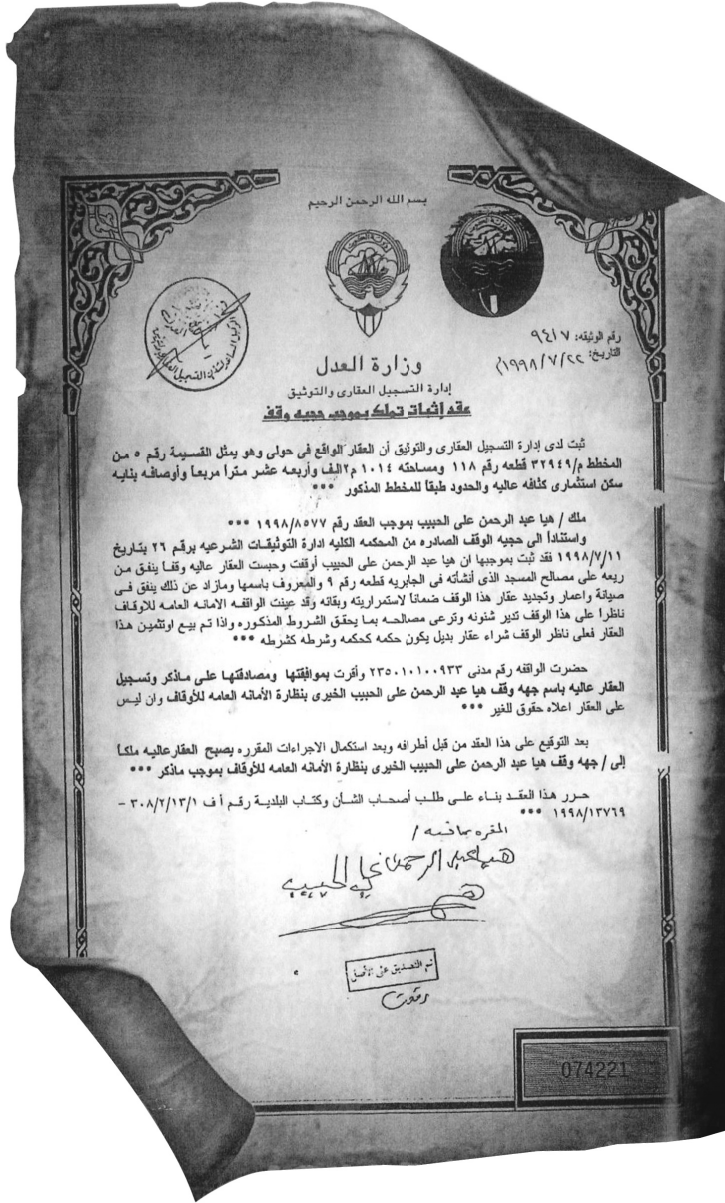 بسم الله الرحمن الرحيم
رقم الوثيقه: ٩٤١٧
التاريخ: ١٩٩٨/٧/٢٢م
وزارة العدل
إدارة التسجيل العقارى والتوثيق
عقد إثبات تملك بموجب حجيه وقف
ثبت لدى إدارة التسجيل العقارى والتوثيق أن العقار الواقع فى حولى وهو يمثل القسيمة رقم ٥ من
المخطط م/٣٢٩٤٩ قطعه رقم ١١٨ ومساحته ١٠١٤ م٢ الف وأربعه عشر متراً مربعاً وأوصافه بنايه
سكن استثمارى كثافه عاليه والحدود طبقاً للمخطط المذكور ***
ملك / هيا عبد الرحمن على الحبيب بموجب العقد رقم ١٩٩٨/٨٥٧٧ ***
واستناداً الى حجيه الوقف الصادره من المحكمه الكليه ادارة التوثيقات الشرعيه برقم ٢٦ بتاريخ
١٩٩٨/٧/١١ فقد ثبت بموجبها ان هيا عبد الرحمن على الحبيب أوقفت وحبست العقار عاليه وقفا ينفق من
ريعه على مصالح المسجد الذى أنشأته فى الجابريه قطعه رقم ٩ والمعروف باسمها ومازاد عن ذلك ينفق فى
صيانة واعمار وتجديد عقار هذا الوقف ضماناً لاستمراريته وبقائه وقد عينت الواقفه الامانه العامه للاوقاف
ناظرا على هذا الوقف تدير شئونه وترعى مصالحه بما يحقق الشروط المذكوره واذا تم بيع اوتثمين هذا
العقار فعلى ناظر الوقف شراء عقار بديل يكون حكمه كحكمه وشرطه كشرطه ***
حضرت الواقفه رقم مدنى ٢٣٥٠١٠١٠٠٩٣٣ وأقرت بموافقتها ومصادقتها على ماذكر وتسجيل
العقار عاليه باسم جهه وقف هيا عبد الرحمن على الحبيب الخيرى بنظارة الأمانه العامه للأوقاف وان ليس
على العقار اعلاه حقوق للغير ***
بعد التوقيع على هذا العقد من قبل أطرافه وبعد استكمال الاجراءات المقرره يصبح العقار عاليه ملكاً
إلى / جهه وقف هيا عبد الرحمن على الحبيب الخيرى بنظارة الامانه العامه للأوقاف بموجب ماذكر ***
حرر هذا العقد بناء على طلب أصحاب الشأن وكتاب البلدية رقم أ ف ٣٠٨/٢/١٣/١ –
١٩٩٨/١٣٧٦٩ ***
المقره بما فيه /
هيا عبد الرحمن علي الحبيب
تم التصديق على الأصل
074221